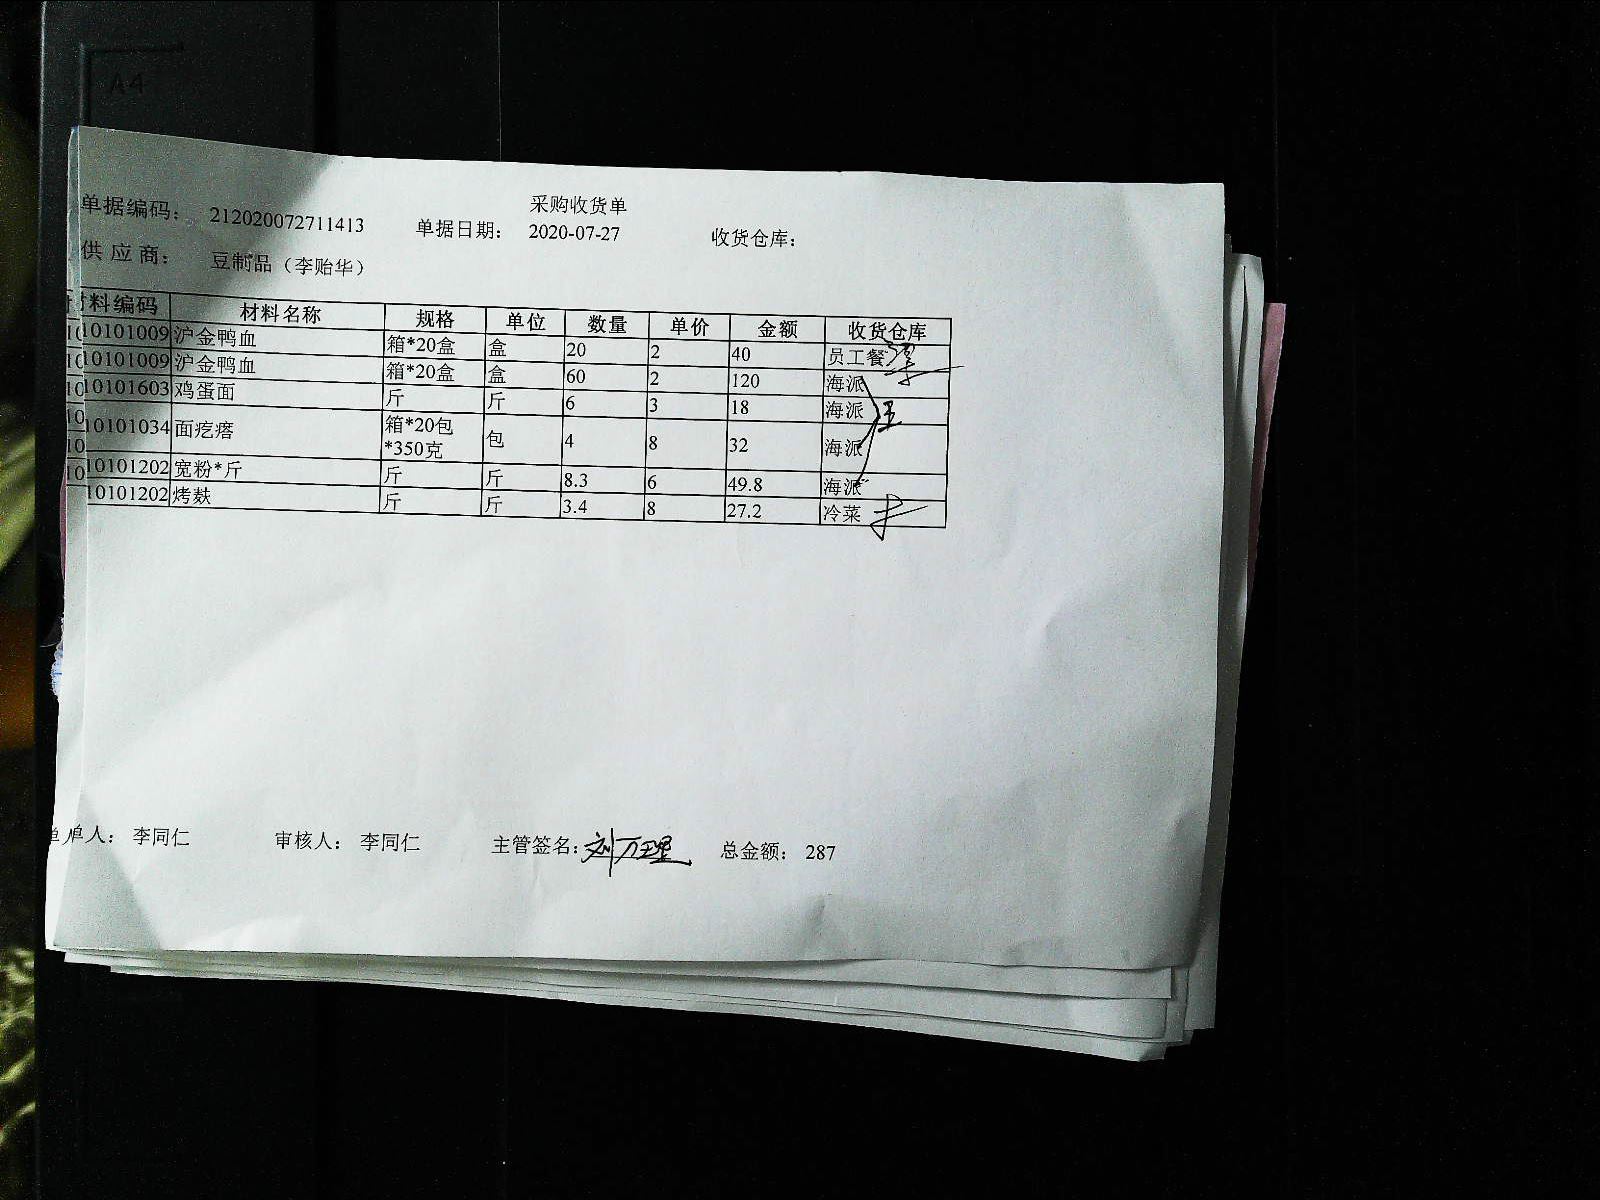 A4
采购收货单
单据编码： 212020072711413 单据日期： 2020-07-27 收货仓库：
供 应 商： 豆制品（李贻华）
材料编码 材料名称 规格 单位 数量 单价 金额 收货仓库
10101009 沪金鸭血 箱*20盒 盒 20 2 40 员工餐
10101009 沪金鸭血 箱*20盒 盒 60 2 120 海派
10101603 鸡蛋面 斤 斤 6 3 18 海派
10101034 面疙瘩 箱*20包*350克 包 4 8 32 海派 王
10101202 宽粉*斤 斤 斤 8.3 6 49.8 海派
10101202 烤麸 斤 斤 3.4 8 27.2 冷菜
单人： 李同仁 审核人： 李同仁 主管签名：刘万理 总金额： 287